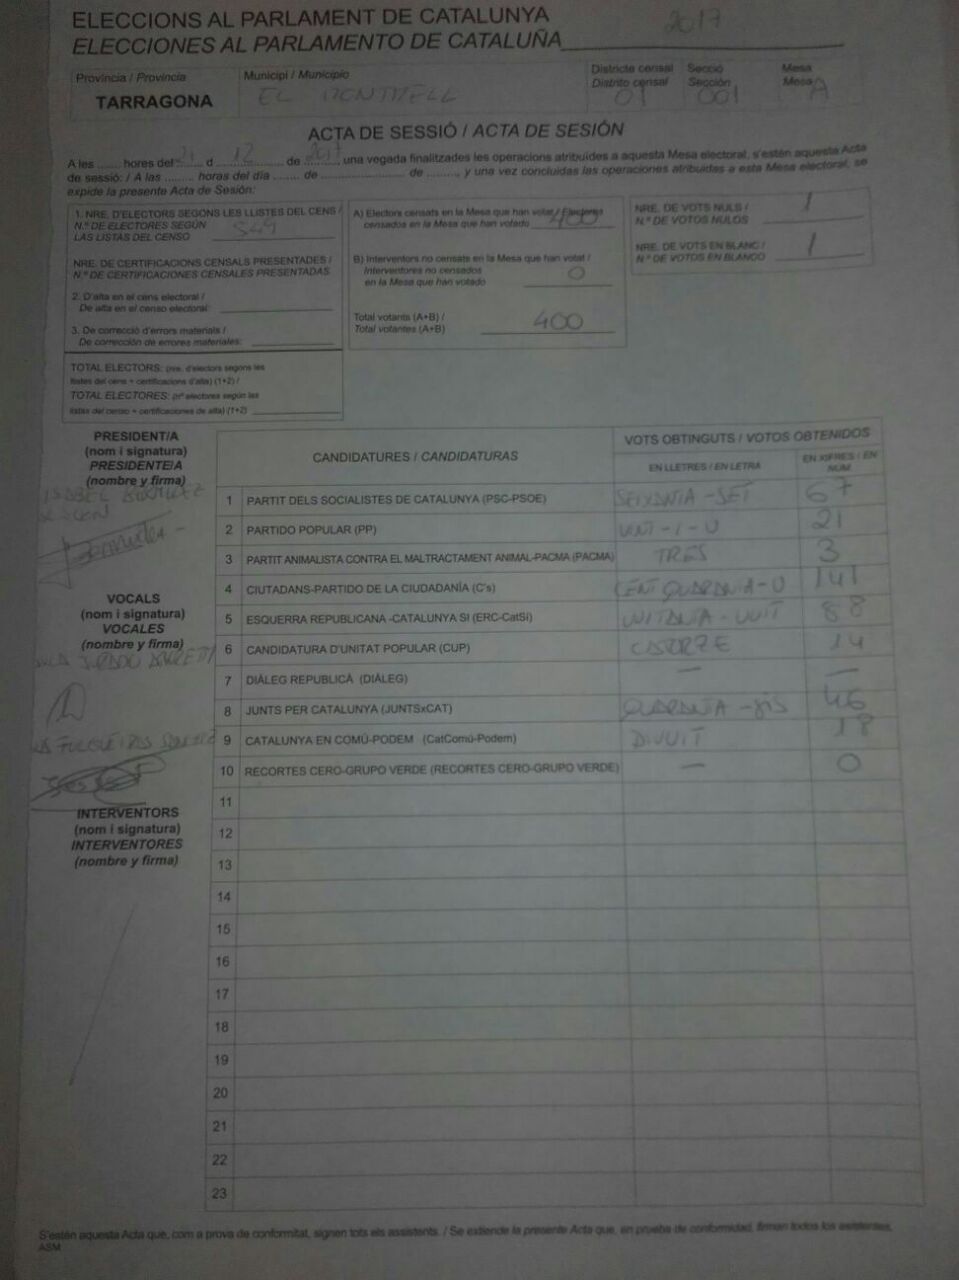 ELECCIONS AL PARLAMENT DE CATALUNYA 2017
ELECCIONES AL PARLAMENTO DE CATALUÑA
Província / Provincia
TARRAGONA
Municipi / Municipio
EL MONTMELL
Districte censal
Distrito censal
01
Secció
Sección
001
Mesa
Mesa A
ACTA DE SESSIÓ / ACTA DE SESIÓN
A les ...... hores del 21 d 12 de 2017 una vegada finalitzades les operacions atribuïdes a aquesta Mesa electoral, s'estén aquesta Acta
de sessió: / A las ....... horas del día ....... de ........................ de ........, y una vez concluidas las operaciones atribuidas a esta Mesa electoral, se
expide la presente Acta de Sesión:
1. NRE. D'ELECTORS SEGONS LES LLISTES DEL CENS /
N.º DE ELECTORES SEGÚN
LAS LISTAS DEL CENSO
NRE. DE CERTIFICACIONS CENSALS PRESENTADES /
N.º DE CERTIFICACIONES CENSALES PRESENTADAS
2. D'alta en el cens electoral /
De alta en el censo electoral:
3. De correcció d'errors materials /
De corrección de errores materiales:
TOTAL ELECTORS: (nre. d'electors segons les
llistes del cens + certificacions d'alta) (1+2) /
TOTAL ELECTORES: (nº electores según las
listas del censo + certificaciones de alta) (1+2)
A) Electors censats en la Mesa que han votat / Electores
censados en la Mesa que han votado 400
B) Interventors no censats en la Mesa que han votat /
Interventores no censados
en la Mesa que han votado 0
Total votants (A+B) /
Total votantes (A+B) 400
NRE. DE VOTS NULS /
N.º DE VOTOS NULOS 1
NRE. DE VOTS EN BLANC /
N.º DE VOTOS EN BLANCO 1
PRESIDENT/A
(nom i signatura)
PRESIDENTE/A
(nombre y firma)
ISABEL
VOCALS
(nom i signatura)
VOCALES
(nombre y firma)
JURADO
INTERVENTORS
(nom i signatura)
INTERVENTORES
(nombre y firma)
CANDIDATURES / CANDIDATURAS
VOTS OBTINGUTS / VOTOS OBTENIDOS
EN LLETRES / EN LETRA
EN XIFRES / EN NÚM
1 PARTIT DELS SOCIALISTES DE CATALUNYA (PSC-PSOE) SEIXANTA-SET 67
2 PARTIDO POPULAR (PP) VINT-I-U 21
3 PARTIT ANIMALISTA CONTRA EL MALTRACTAMENT ANIMAL-PACMA (PACMA) TRES 3
4 CIUTADANS-PARTIDO DE LA CIUDADANÍA (C's) CENT QUARANTA-U 141
5 ESQUERRA REPUBLICANA -CATALUNYA SI (ERC-CatSí) VUITANTA-VUIT 88
6 CANDIDATURA D'UNITAT POPULAR (CUP) CATORZE 14
7 DIÀLEG REPUBLICÀ (DIÀLEG) — —
8 JUNTS PER CATALUNYA (JUNTSxCAT) QUARANTA-SIS 46
9 CATALUNYA EN COMÚ-PODEM (CatComú-Podem) DIVUIT 18
10 RECORTES CERO-GRUPO VERDE (RECORTES CERO-GRUPO VERDE) — 0
11
12
13
14
15
16
17
18
19
20
21
22
23
S'estén aquesta Acta que, com a prova de conformitat, signen tots els assistents. / Se extiende la presente Acta que, en prueba de conformidad, firman todos los asistentes.
ASM